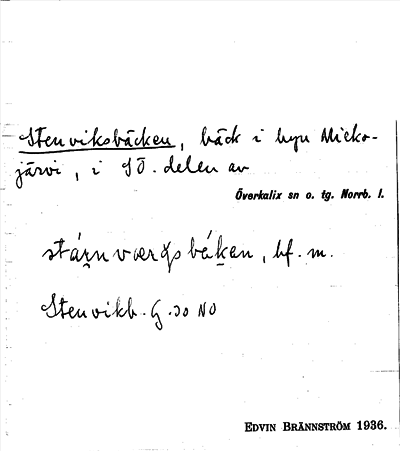 Stenviksbäcken, bäck i byn Mieko-
järvi, i SÖ. delen av
Överkalix sn o. tg. Norrb. l.
bf. m.
Stenvikb. G. 30 NO
EDVIN BRÄNNSTRÖM 1936.